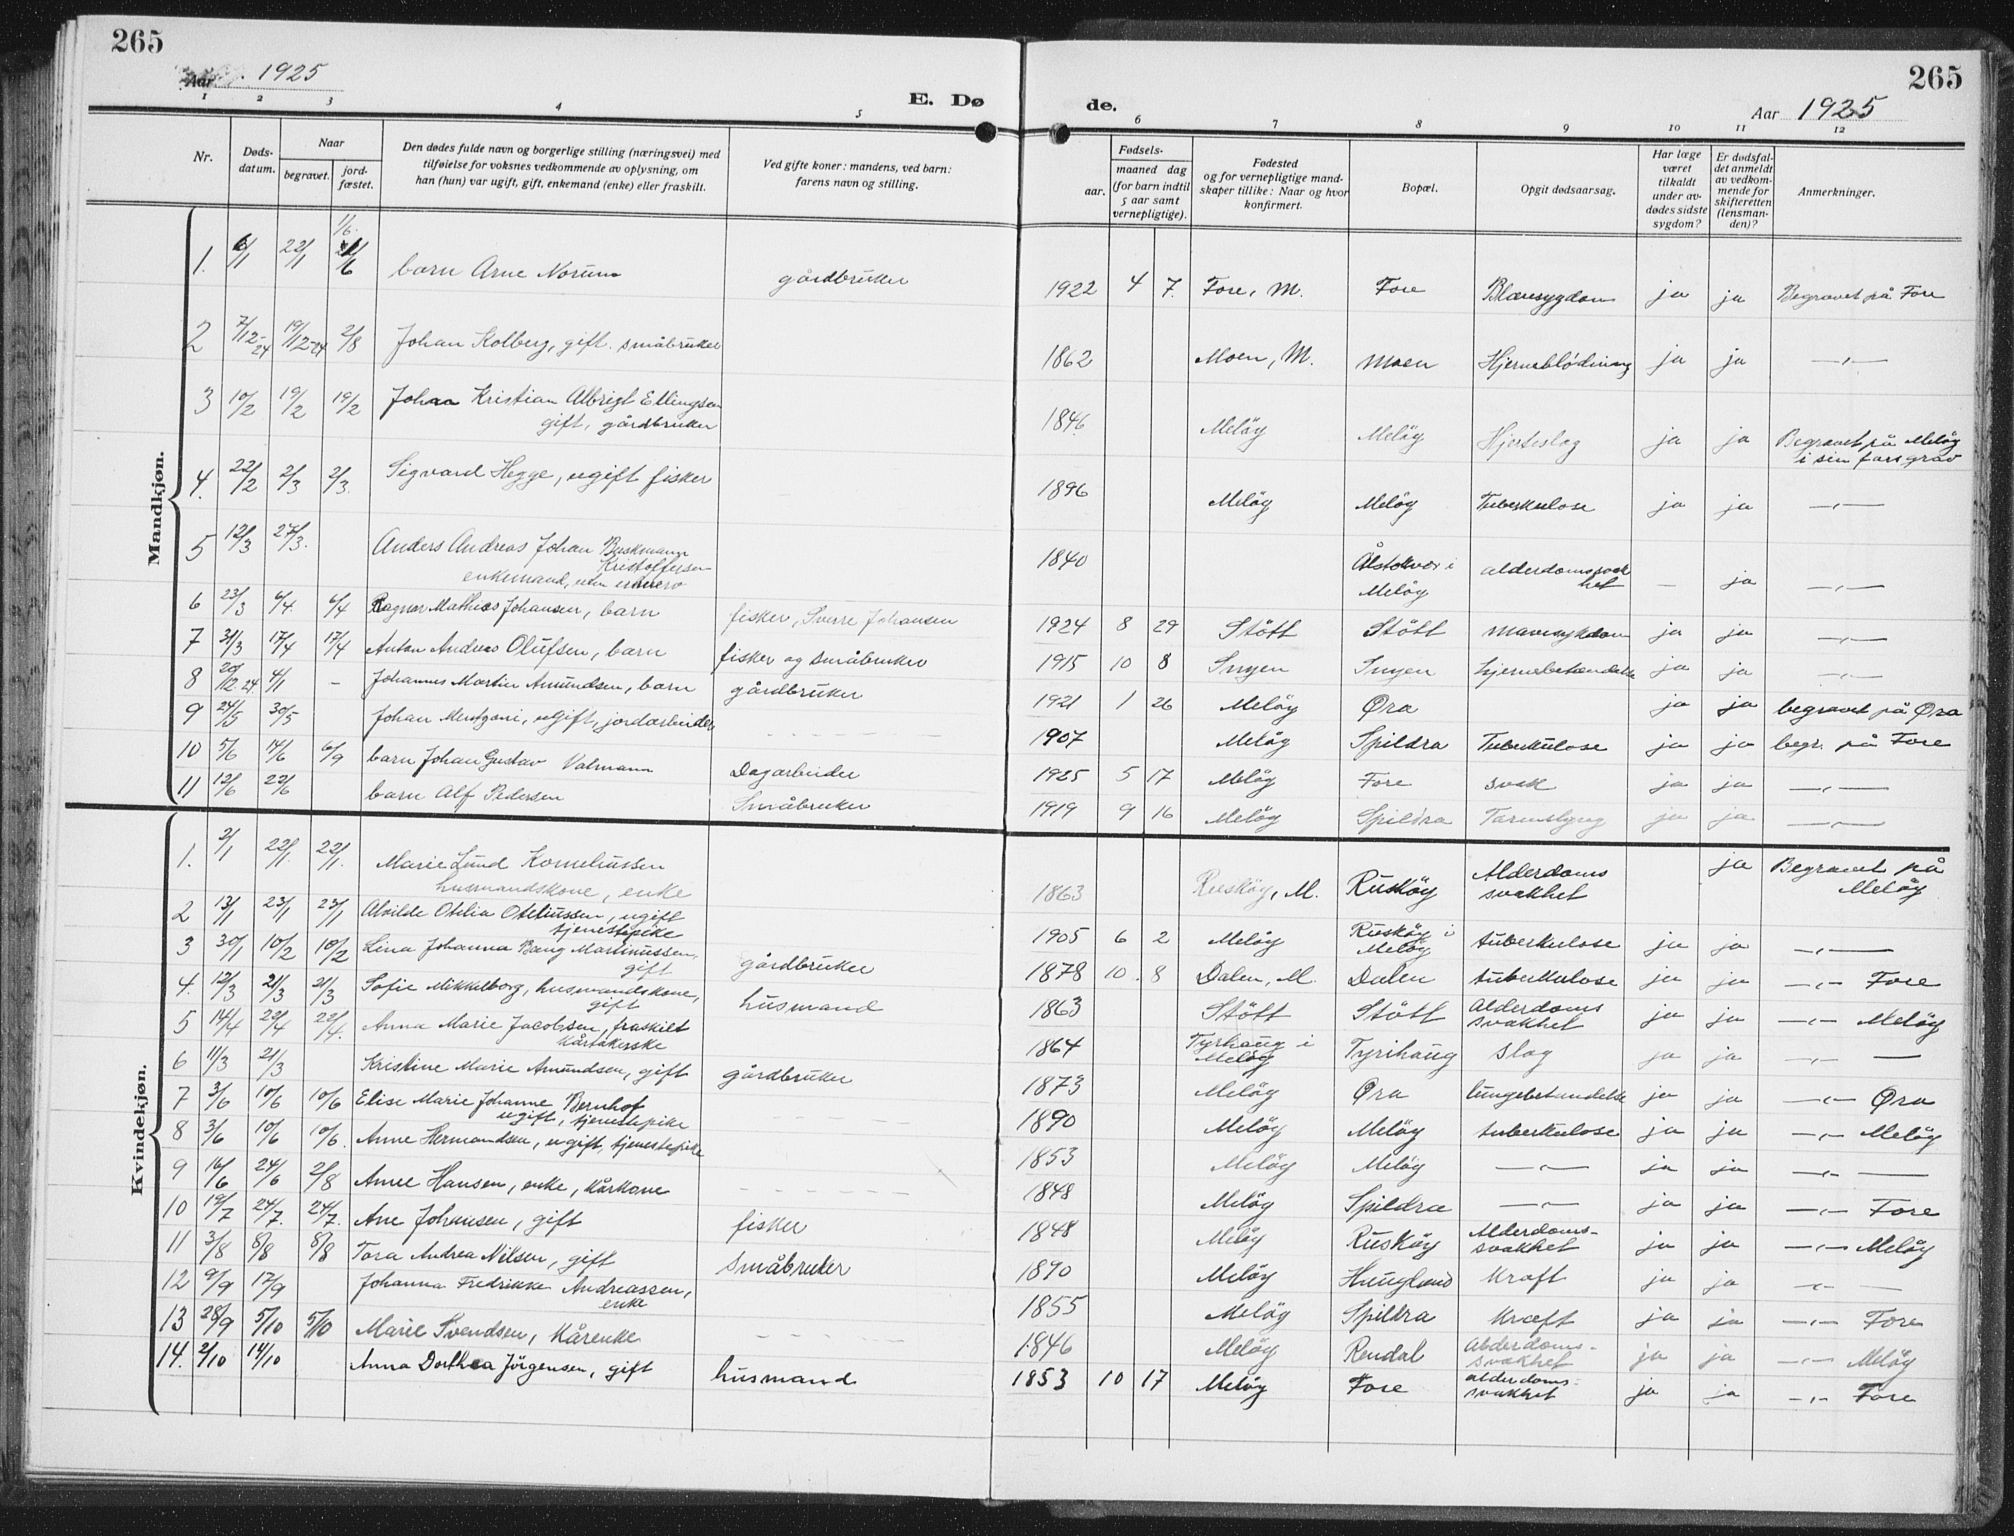 265
Aar 1925
E. Dø
de.
Aar 1925
265
1 2 3 4 5 6 7 8 9 10 11 12
Nr.
Døds-
datum.
Naar
begravet.
jord-
fæstet.
Den dødes fulde navn og borgerlige stilling (næringsvei) med
tilføielse for voksnes vedkommende av oplysning, om
han (hun) var ugift, gift, enkemand (enke) eller fraskilt.
Ved gifte koner: mandens, ved barn:
farens navn og stilling.
Fødsels-
aar.
maaned dag
(for barn indtil
5 aar samt
vernepligtige).
Fødested
og for vernepligtige mand-
skaper tillike: Naar og hvor
konfirmert.
Bopæl.
Opgit dødsaarsag.
Har læge
været
tilkaldt
under av-
dødes sidste
sygdom?
Er dødsfal-
det anmeldt
av vedkom-
mende for
skifteretten
(lensman-
den)?
Anmerkninger.
Mandkjøn.
1. 6/1 22/1 1/6 barn Arne Norum gårdbruker 1922 4 7. Fore, M. Fore Blæresygdom ja ja Begravet på Fore
2 7/12-24 19/12-24 2/8 Johan Kolberg, gift. småbruker 1862 Moen, M. Moen Hjerneblødning ja ja —„—
3 10/2 19/2 19/2 Johan Kristian Albrigt Ellingsen
gift, gårdbruker 1846 Meløy Meløy Hjerteslag ja ja Begravet på Meløy
i sin fars grav
4. 22/2 2/3 2/3. Sigvard Hegge, ugift fisker 1896 Meløy Meløy Tuberkulose ja ja —„—
5 12/3 27/3. Anders Andreas Johan Buskmann
Kristoffersen
enkemand, uten erhverv 1840 Ålstokvær i
Meløy alderdomssvak
het — ja —„—
6 23/3 6/4. 6/4 Ragnar Mathias Johansen, barn fisker, Sverre Johansen 1924 8 29 Stött Stött Mavesykdom ja ja —„—
7 31/3 17/4 17/4 Anton Andreas Olufsen, barn fisker og småbruker 1915 10 8 Ingen Ingen hjernebetændelse ja ja —„—
8 20/12 24 4/1 — Johannes Martin Amundsen, barn gårdbruker 1921 1 26 Meløy Øra ja ja begravet på Øra
9 24/5 30/5 Johan Mentzoni, ugift, jordarbeider 1907 Meløy Spildra Tuberkulose ja ja begr. på Fore
10 5/6 14/6 6/9 barn Johan Gustav Valmann Dagarbeider 1925 5 17 Meløy Fore svak ja ja —„—
11 12/6 22/6 barn Alf Pedersen Småbruker 1919 9 16 Meløy Spildra Tarmslyng ja ja —„—
Kvindekjøn.
1. 2/1 22/1. 22/1. Marie Lund Korneliussen
husmandskone, enke 1863 Ruskøy, M. Ruskøy Alderdoms
svakhet ja Begravet på
Meløy
2 13/1 23/1 23/1 Alvilde Otelia Oteliussen, ugift
tjenestepike 1905 6 2 Meløy Ruskøy i
Meløy tuberkulose ja ja —„—
3 30/1 10/2 10/2 Lina Johanna Bang Martinussen,
gift gårdbruker 1878 10 8 Dalen, M. Dalen tuberkulose ja ja —„— Fore
4. 12/3 21/3 21/3 Sofie Mikkelborg, husmandskone,
gift husmand 1863 Stött Stött Alderdoms
svakhet ja ja —„— Meløy
5 14/4 22/4 22/4. Anna Marie Jacobsen, fraskilt
kårtakerske 1864 Tyrhaug i
Meløy Tyrihaug slag ja ja —„— —
6 11/3 21/3 Kristine Marie Amundsen, gift gårdbruker 1873 Meløy Øra lungebetændelse ja ja —„— Øra
7 3/6 10/6 10/6 Elise Marie Johanne Bernhof
ugift, tjenestepike 1890 Meløy Meløy tuberkulose ja ja —„— Meløy
8 3/6 10/6 10/6. Anne Hermandsen, ugift, tjenestepike 1853 Meløy Meløy —„— ja ja —„— —
9 16/6 24/6 2/8 Anne Hansen, enke, kårkone 1848 Meløy Spildra —„— ja ja —„— Fore
10 19/7 24/7. 24/7. Ane Johansen, gift fisker 1848 Meløy Ruskøy Alderdoms-
svakhet ja ja —„— Meløy
11 3/8 8/8 8/8 Tora Andrea Nilsen, gift småbruker 1890 Meløy Haugland kræft ja ja —„— —
12 9/9 17/9 Johanna Fredrikke Andreassen,
enke 1855 Meløy Spildra kræft ja ja —„— Fore
13 28/9 5/10 5/10 Marie Svendsen, kårenke 1846 Meløy Rendal Alderdoms-
svakhet ja ja —„— Meløy
14. 2/10 14/10 Anna Dorthea Jörgensen, gift husmand 1853 10 17 Meløy Fore alderdoms-
svakhet ja ja —„— Fore